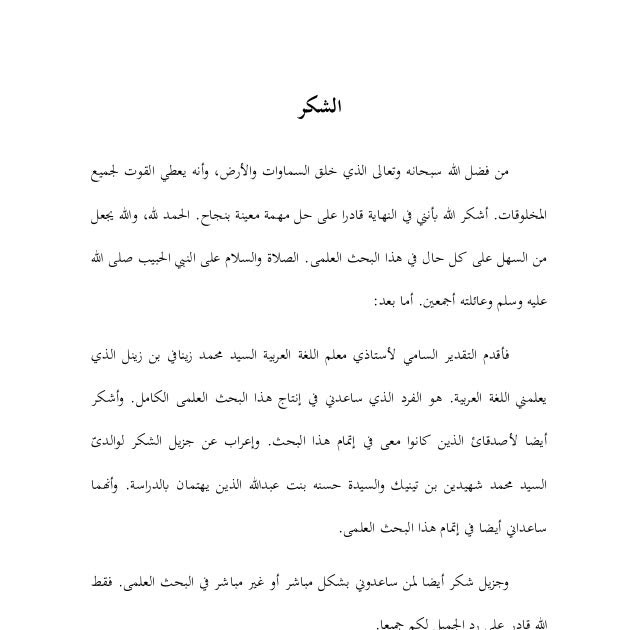 الشكر
من فضل الله سبحانه وتعالى الذي خلق السماوات والأرض، وأنه يعطي القوت لجميع
المخلوقات. أشكر الله بأنني في النهاية قادرا على حل مهمة معينة بنجاح. الحمد لله، والله يجعل
من السهل على كل حال في هذا البحث العلمى. الصلاة والسلام على النبي الحبيب صلى الله
عليه وسلم وعائلته أجمعين. أما بعد:
فأقدم التقدير السامي لأستاذي معلم اللغة العربية السيد محمد زينافي بن زينل الذي
يعلمني اللغة العربية. هو الفرد الذي ساعدني في إنتاج هذا البحث العلمى الكامل. وأشكر
أيضا لأصدقائ الذين كانوا معى في إتمام هذا البحث. وإعراب عن جزيل الشكر لوالدىّ
السيد محمد شهيدين بن تينيك والسيدة حسنه بنت عبدالله الذين يهتمان بالدراسة. وأنهما
ساعداني أيضا في إتمام هذا البحث العلمى.
وجزيل شكر أيضا لمن ساعدوني بشكل مباشر أو غير مباشر في البحث العلمى. فقط
الله قادر على رد الجميل لكم جميعا.